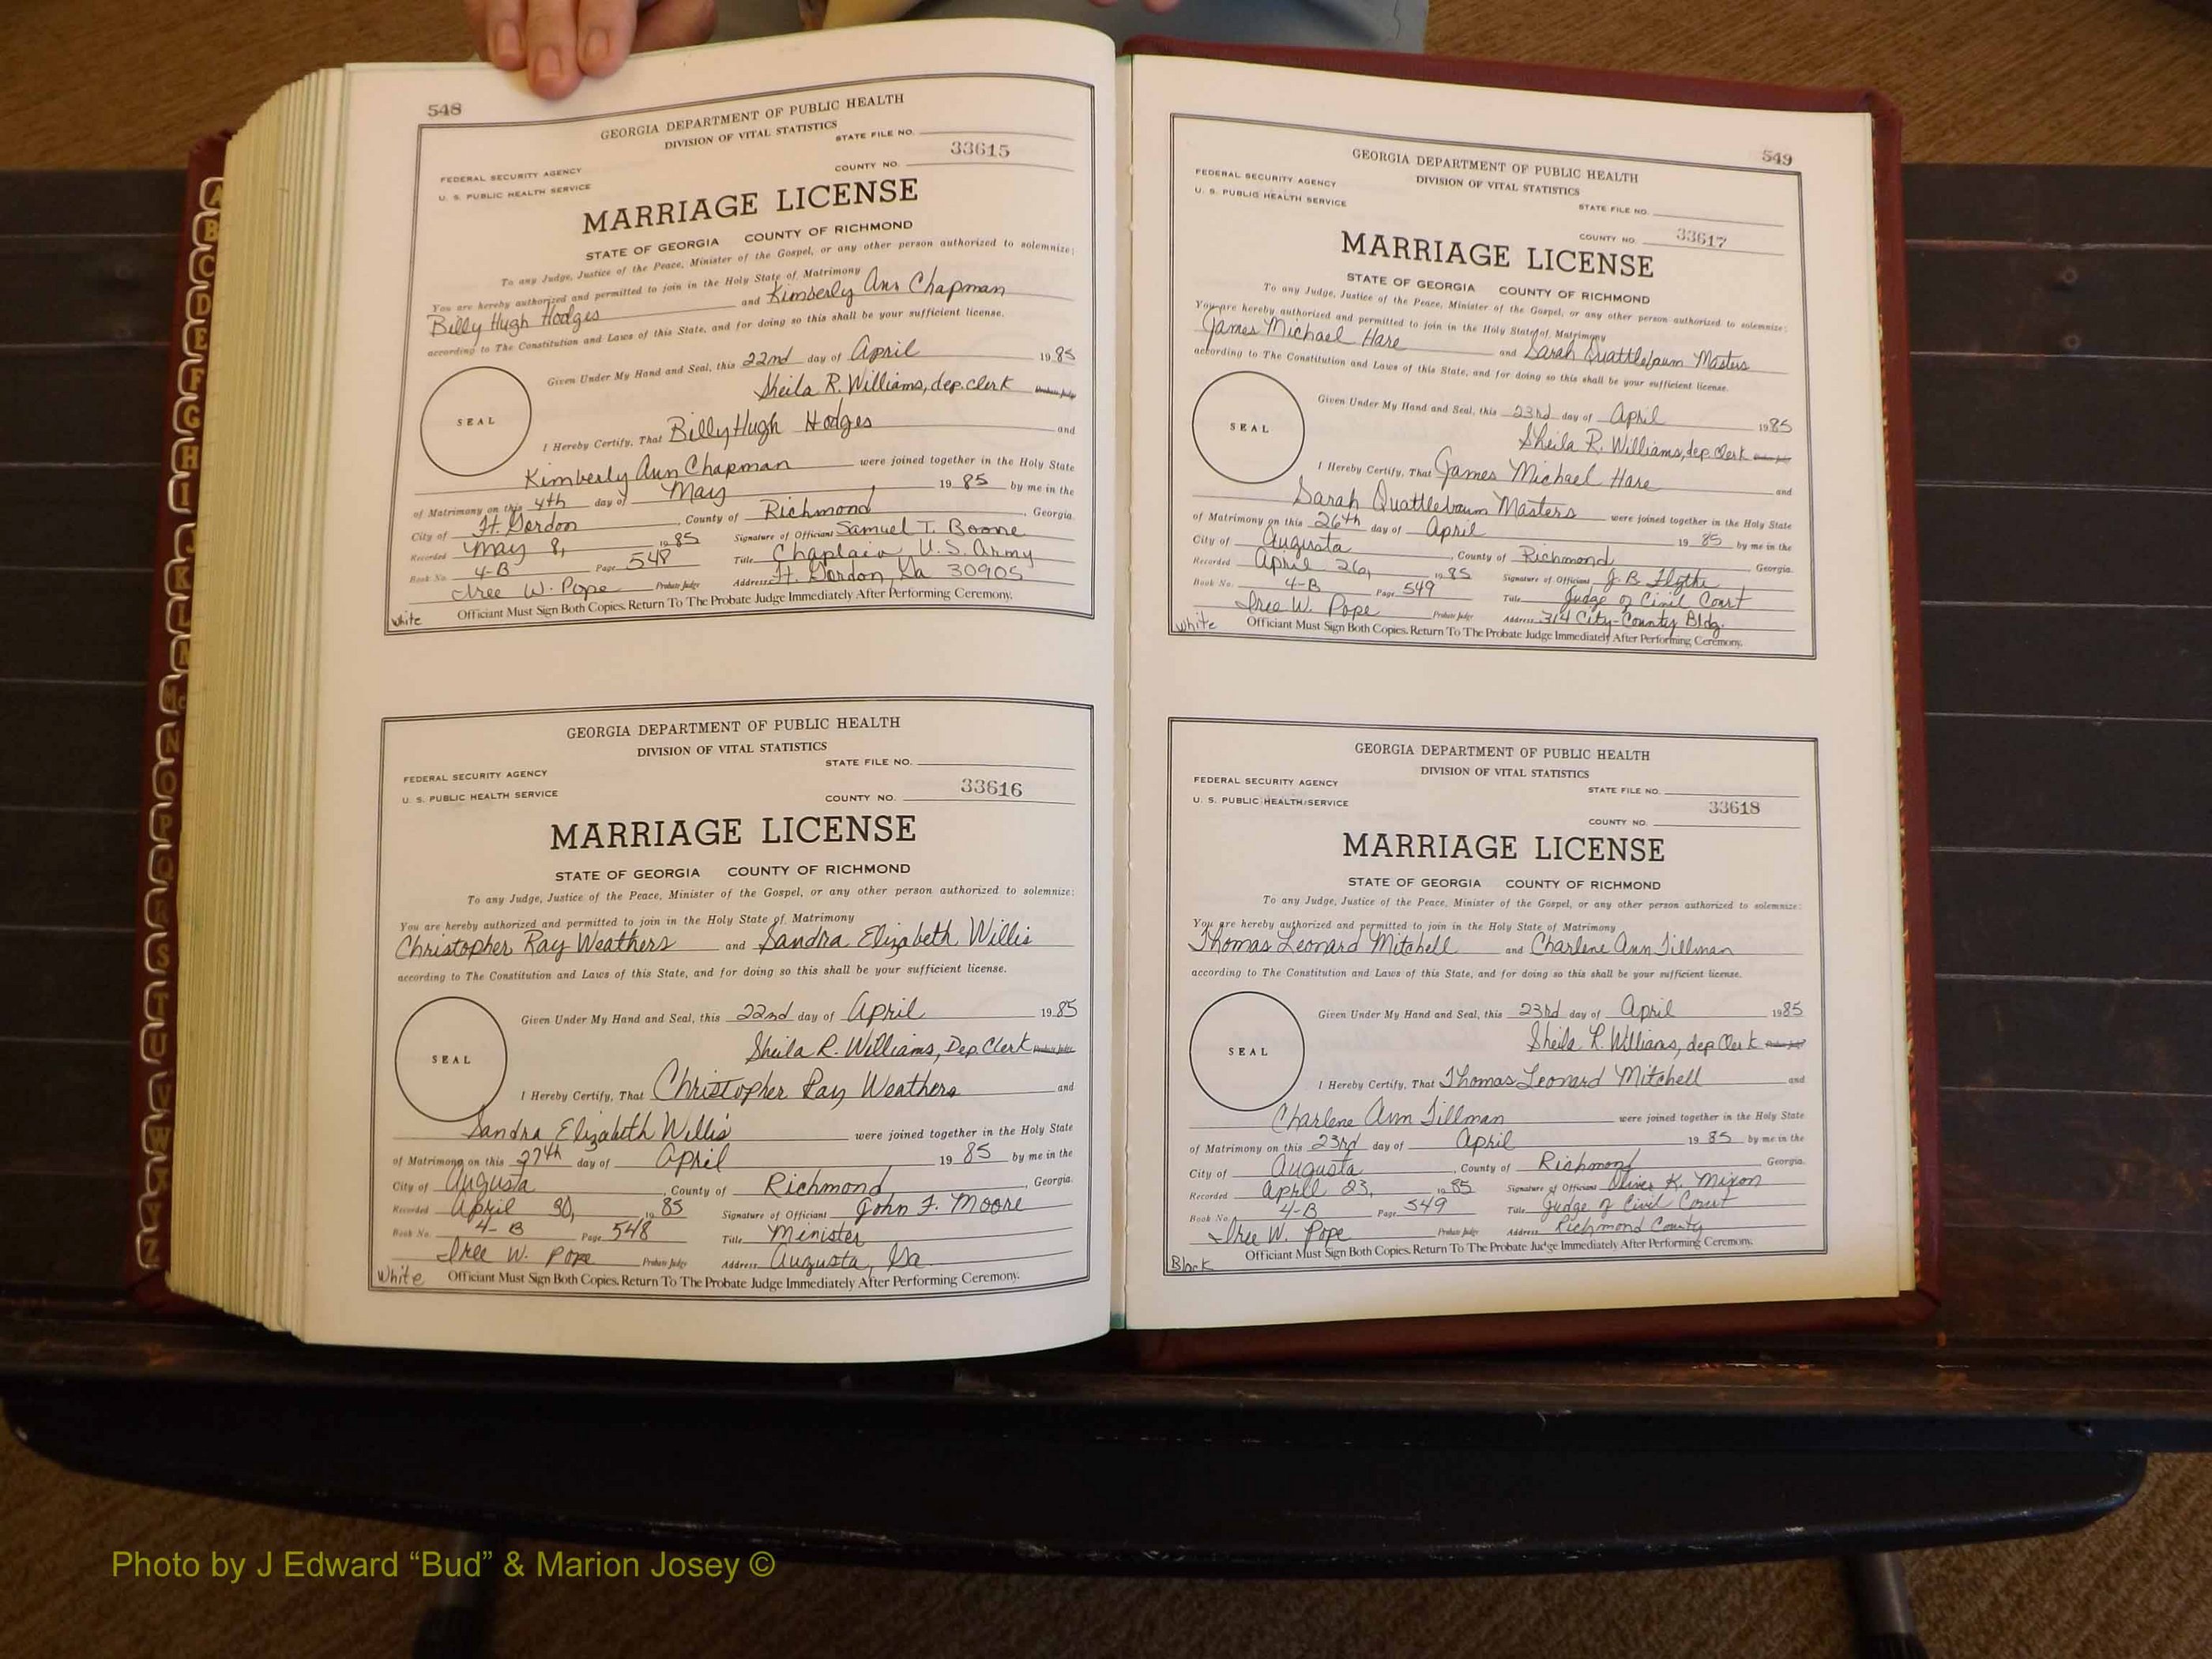 548
GEORGIA DEPARTMENT OF PUBLIC HEALTH
DIVISION OF VITAL STATISTICS
STATE FILE NO.
33615
COUNTY NO.
FEDERAL SECURITY AGENCY
U. S. PUBLIC HEALTH SERVICE
MARRIAGE LICENSE
STATE OF GEORGIA COUNTY OF RICHMOND
To any Judge, Justice of the Peace, Minister of the Gospel, or any other person authorized to solemnize:
You are hereby authorized and permitted to join in the Holy State of Matrimony
Billy Hugh Hodges and Kimberly Ann Chapman
according to The Constitution and Laws of this State, and for doing so this shall be your sufficient license.
Given Under My Hand and Seal, this 22nd day of April 1985
Sheila R. Williams, dep. clerk Probate Judge
SEAL
I Hereby Certify, That Billy Hugh Hodges and
Kimberly Ann Chapman were joined together in the Holy State
of Matrimony on this 4th day of May 19 85 by me in the
City of Ft. Gordon, County of Richmond, Georgia.
Recorded May 8, 1985 Signature of Officiant Samuel T. Boone
Book No. 4-B Page 548 Title Chaplain, U.S. Army
Iree W. Pope Probate Judge Address Ft. Gordon, Ga 30905
White Officiant Must Sign Both Copies. Return To The Probate Judge Immediately After Performing Ceremony.
GEORGIA DEPARTMENT OF PUBLIC HEALTH
DIVISION OF VITAL STATISTICS
STATE FILE NO.
FEDERAL SECURITY AGENCY
U. S. PUBLIC HEALTH SERVICE
COUNTY NO. 33616
MARRIAGE LICENSE
STATE OF GEORGIA COUNTY OF RICHMOND
To any Judge, Justice of the Peace, Minister of the Gospel, or any other person authorized to solemnize:
You are hereby authorized and permitted to join in the Holy State of Matrimony
Christopher Ray Weathers and Sandra Elizabeth Willis
according to The Constitution and Laws of this State, and for doing so this shall be your sufficient license.
Given Under My Hand and Seal, this 22nd day of April 1985
Sheila R. Williams, Dep. Clerk Probate Judge
SEAL
I Hereby Certify, That Christopher Ray Weathers and
Sandra Elizabeth Willis were joined together in the Holy State
of Matrimony on this 27th day of April 19 85 by me in the
City of Augusta, County of Richmond, Georgia.
Recorded April 30, 1985 Signature of Officiant John F. Moore
Book No. 4-B Page 548 Title Minister
Iree W. Pope Probate Judge Address Augusta, Ga.
White Officiant Must Sign Both Copies. Return To The Probate Judge Immediately After Performing Ceremony.
549
GEORGIA DEPARTMENT OF PUBLIC HEALTH
DIVISION OF VITAL STATISTICS
FEDERAL SECURITY AGENCY
U. S. PUBLIC HEALTH SERVICE
STATE FILE NO.
COUNTY NO. 33617
MARRIAGE LICENSE
STATE OF GEORGIA COUNTY OF RICHMOND
To any Judge, Justice of the Peace, Minister of the Gospel, or any other person authorized to solemnize:
You are hereby authorized and permitted to join in the Holy State of Matrimony
James Michael Hare and Sarah Quattlebaum Masters
according to The Constitution and Laws of this State, and for doing so this shall be your sufficient license.
Given Under My Hand and Seal, this 23rd day of April 1985
Sheila R. Williams, dep. Clerk Probate Judge
SEAL
I Hereby Certify, That James Michael Hare and
Sarah Quattlebaum Masters were joined together in the Holy State
of Matrimony on this 26th day of April 19 85 by me in the
City of Augusta, County of Richmond Georgia.
Recorded April 26, 1985 Signature of Officiant J. B.
Book No. 4-B Page 549 Title Judge of Civil Court
Iree W. Pope Probate Judge Address 314 City-County Bldg.
White Officiant Must Sign Both Copies. Return To The Probate Judge Immediately After Performing Ceremony.
GEORGIA DEPARTMENT OF PUBLIC HEALTH
DIVISION OF VITAL STATISTICS
FEDERAL SECURITY AGENCY
STATE FILE NO.
U. S. PUBLIC HEALTH SERVICE
33618
COUNTY NO.
MARRIAGE LICENSE
STATE OF GEORGIA COUNTY OF RICHMOND
To any Judge, Justice of the Peace, Minister of the Gospel, or any other person authorized to solemnize:
You are hereby authorized and permitted to join in the Holy State of Matrimony
Thomas Leonard Mitchell and Charlene Ann Tillman
according to The Constitution and Laws of this State, and for doing so this shall be your sufficient license.
Given Under My Hand and Seal, this 23rd day of April 1985
Sheila R. Williams, dep Clerk Probate Judge
SEAL
I Hereby Certify, That Thomas Leonard Mitchell and
Charlene Ann Tillman were joined together in the Holy State
of Matrimony on this 23rd day of April 19 85 by me in the
City of Augusta, County of Richmond Georgia.
Recorded April 23, 1985 Signature of Officiant Oliver K. Mixon
Book No. 4-B Page 549 Title Judge of Civil Court
Iree W. Pope Probate Judge Address Richmond County
Black Officiant Must Sign Both Copies. Return To The Probate Judge Immediately After Performing Ceremony.
Photo by J Edward “Bud” & Marion Josey ©